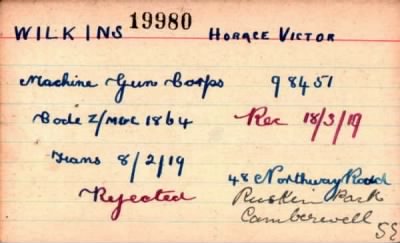 19980
WILKINS HORACE VICTOR
Machine Gun Corps 98451
Code Z/MGC 1864 Rec 18/3/19
Trans 8/2/19
48 Northway Road
Rejected Ruskin Park
Camberwell
SE